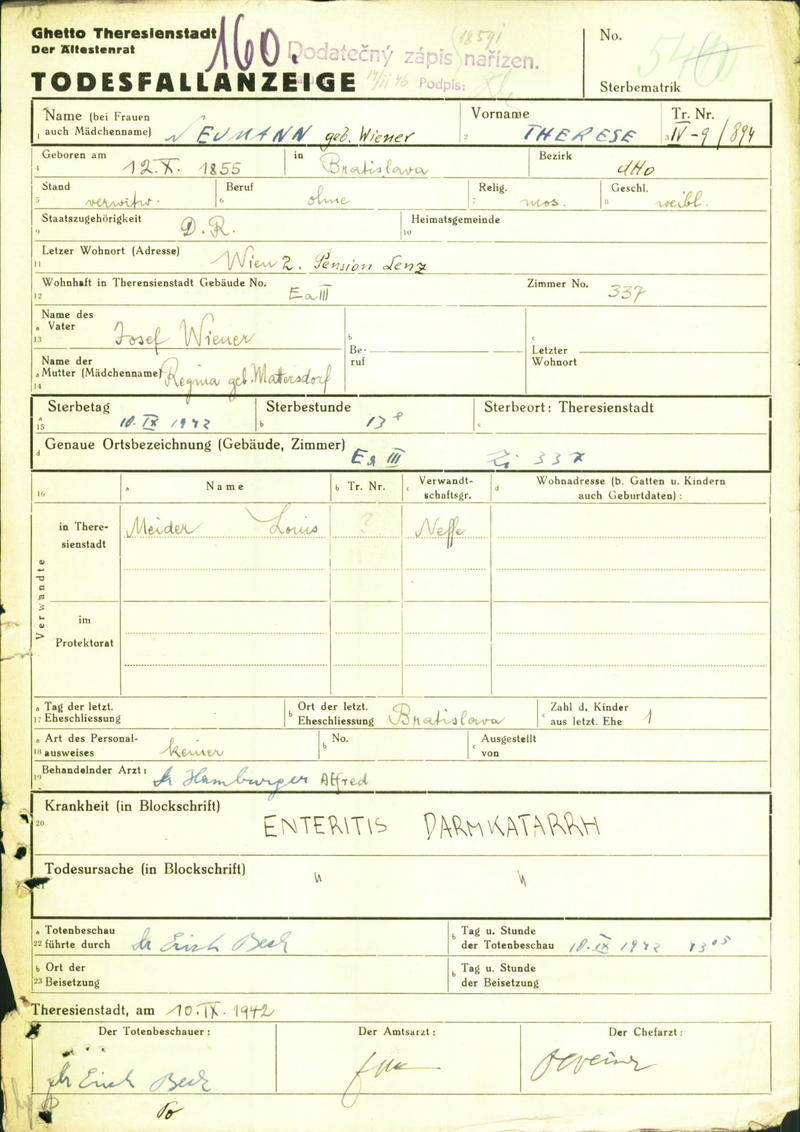 Ghetto Theresienstadt
Der Ältestenrat
160.
Dodatečný zápis nařízen.
Podpis:
TODESFALLANZEIGE
No.
Sterbematrik
Name (bei Frauen auch Mädchenname) NEUMANN geb. Wiener
Vorname THERESE
Tr. Nr. IV-9/894
Geboren am 12.X. 1855 in Bratislawa Bezirk dtto
Stand verwitw. Beruf ohne Relig. mos. Geschl. weibl.
Staatszugehörigkeit D.R. Heimatsgemeinde
Letzer Wohnort (Adresse) Wien 2. Pension Lenz
Wohnhaft in Therensienstadt Gebäude No. Ea III Zimmer No. 337
Name des Vater Josef Wiener
Name der Mutter (Mädchenname) Regina geb. Mattersdorf
Beruf
Letzter Wohnort
Sterbetag 10.IX 1942 Sterbestunde 13 Sterbeort: Theresienstadt
Genaue Ortsbezeichnung (Gebäude, Zimmer) Ea III Zi 337
Name Tr. Nr. Verwandtschaftsgr. Wohnadresse (b. Gatten u. Kindern auch Geburtdaten):
Verwandte
in Theresienstadt Meider Louis ? Neffe
im Protektorat
Tag der letzt. Eheschliessung Ort der letzt. Eheschliessung Bratislawa Zahl d. Kinder aus letzt. Ehe 1
Art des Personalausweises keiner No. Ausgestellt von
Behandelnder Arzt: Dr Hamburger Alfred
Krankheit (in Blockschrift)
ENTERITIS DARMKATARRH
Todesursache (in Blockschrift) " "
Totenbeschau führte durch Dr Erich Beck Tag u. Stunde der Totenbeschau 10.IX 1942
Ort der Beisetzung Tag u. Stunde der Beisetzung
Theresienstadt, am 10.IX.1942
Der Totenbeschauer: Der Amtsarzt: Der Chefarzt:
Dr Erich Beck